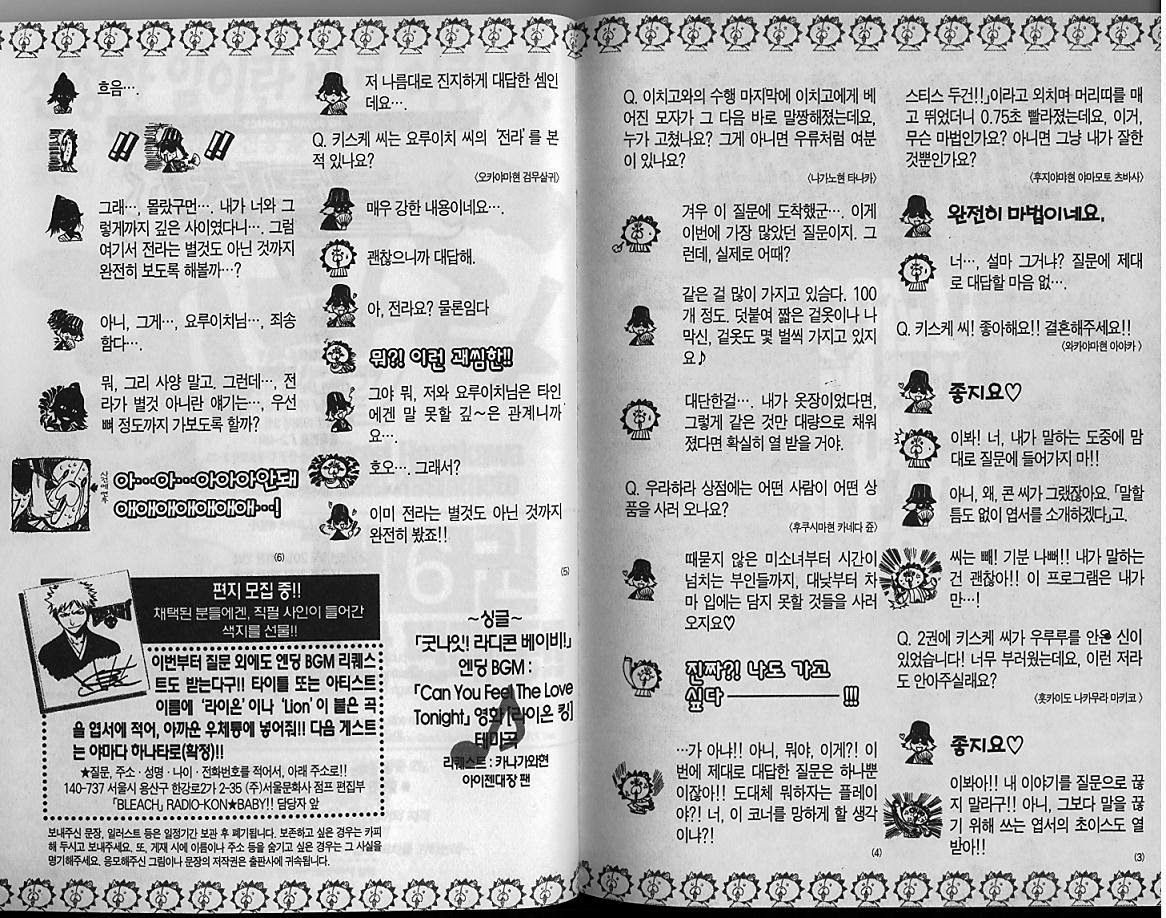 스티스 두건!!」이라고 외치며 머리띠를 매
고 뛰었더니 0.75초 빨라졌는데요, 이거,
무슨 마법인가요? 아니면 그냥 내가 잘한
것뿐인가요?
〈후지야먀현 야마모토 츠바사〉
완전히 마법이네요.
너…, 설마 그거냐? 질문에 제대
로 대답할 마음 없….
Q. 키스케 씨! 좋아해요!! 결혼해주세요!!
〈와카야마현 아야카〉
좋지요♡
이봐! 너, 내가 말하는 도중에 맘
대로 질문에 들어가지 마!!
아니, 왜, 콘 씨가 그랬잖아요. 「말할
틈도 없이 엽서를 소개하겠다」고.
씨는 빼! 기분 나뻐!! 내가 말하는
건 괜찮아!! 이 프로그램은 내가
만…!
Q. 2권에 키스케 씨가 우루루를 안은 신이
있었습니다! 너무 부러웠는데요, 이런 저라
도 안아주실래요?
〈홋카이도 나카무라 마키코〉
좋지요♡
이봐아!! 내 이야기를 질문으로 끊
지 말라구!! 아니, 그보다 말을 끊
기 위해 쓰는 엽서의 초이스도 열
받아!!
(3)
Q. 이치고와의 수행 마지막에 이치고에게 베
어진 모자가 그 다음 바로 말짱해졌는데요,
누가 고쳤나요? 그게 아니면 우류처럼 여분
이 있나요?
〈나가노현 타나카〉
겨우 이 질문에 도착했군…. 이게
이번에 가장 많았던 질문이지. 그
런데, 실제로 어때?
같은 걸 많이 가지고 있슴다. 100
개 정도. 덧붙여 짧은 겉옷이나 나
막신, 겉옷도 몇 벌씩 가지고 있지
요♪
대단한걸…. 내가 옷장이었다면,
그렇게 같은 것만 대량으로 채워
졌다면 확실히 열 받을 거야.
Q. 우라하라 상점에는 어떤 사람이 어떤 상
품을 사러 오나요?
〈후쿠시마현 카네다 쥰〉
때묻지 않은 미소녀부터 시간이
넘치는 부인들까지, 대낮부터 차
마 입에는 담지 못할 것들을 사러
오지요♡
진짜?! 나도 가고
싶다――――!!!
…가 아냐!! 아니, 뭐야, 이게?! 이
번에 제대로 대답한 질문은 하나뿐
이잖아!! 도대체 뭐하자는 플레이
야?! 너, 이 코너를 망하게 할 생각
이냐?!
(4)
저 나름대로 진지하게 대답한 셈인
데요….
Q. 키스케 씨는 요루이치 씨의 '전라'를 본
적 있나요?
〈오카야마현 검무살귀〉
매우 강한 내용이네요….
괜찮으니까 대답해.
아, 전라요? 물론임다
뭐?! 이런 괘씸한!!
그야 뭐, 저와 요루이치님은 타인
에겐 말 못할 깊~은 관계니까
요….
호오…, 그래서?
이미 전라는 별것도 아닌 것까지
완전히 봤죠!!
(5)
~싱글~
「굿나잇! 라디콘 베이비!」
엔딩 BGM :
「Can You Feel The Love
Tonight」 영화 [라이온 킹]
테마곡
리퀘스트 : 카나가와현
아이젠대장 팬
흐음….
!!
!!
그래…, 몰랐구먼…. 내가 너와 그
렇게까지 깊은 사이였다니…. 그럼
여기서 전라는 별것도 아닌 것까지
완전히 보도록 해볼까…?
아니, 그게…, 요루이치님…, 죄송
함다….
뭐, 그리 사양 말고. 그런데…, 전
라가 별것 아니란 얘기는…, 우선
뼈 정도까지 가보도록 할까?
아…아…아아아안돼
애애애애애애애…!
(6)
편지 모집 중!!
채택된 분들에겐, 직필 사인이 들어간
색지를 선물!!
이번부터 질문 외에도 엔딩 BGM 리퀘스
트도 받는다구!! 타이틀 또는 아티스트
이름에 '라이온'이나 'Lion'이 붙은 곡
을 엽서에 적어, 아까운 우체통에 넣어줘!! 다음 게스트
는 야마다 하나타로(확정)!!
★질문, 주소·성명·나이·전화번호를 적어서, 아래 주소로!!
140-737 서울시 용산구 한강로2가 2-35 (주)서울문화사 점프 편집부
「BLEACH」 RADIO-KON★BABY!! 담당자 앞
보내주신 문장, 일러스트 등은 일정기간 보관 후 폐기됩니다. 보존하고 싶은 경우는 카피
해 두시고 보내주세요. 또, 게재 시에 이름이나 주소 등을 숨기고 싶은 경우는 그 사실을
명기해주세요. 응모해주신 그림이나 문장의 저작권은 출판사에 귀속됩니다.